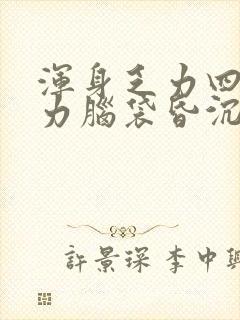 渾身乏力四
力腦袋昏沉
許景琛李中興